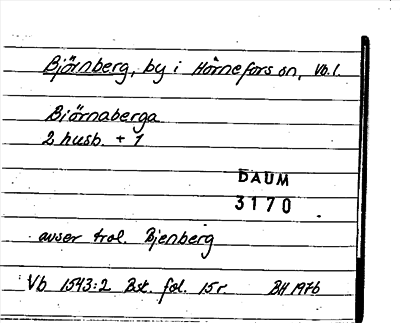 Björnberg, by i Hörnefors sn, Vb. l.
Biörnaberga
2 husb. + 1
DAUM
3170
avser trol. Bjenberg
Vb 1543:2 Bst. fol. 15 r. BH 1976